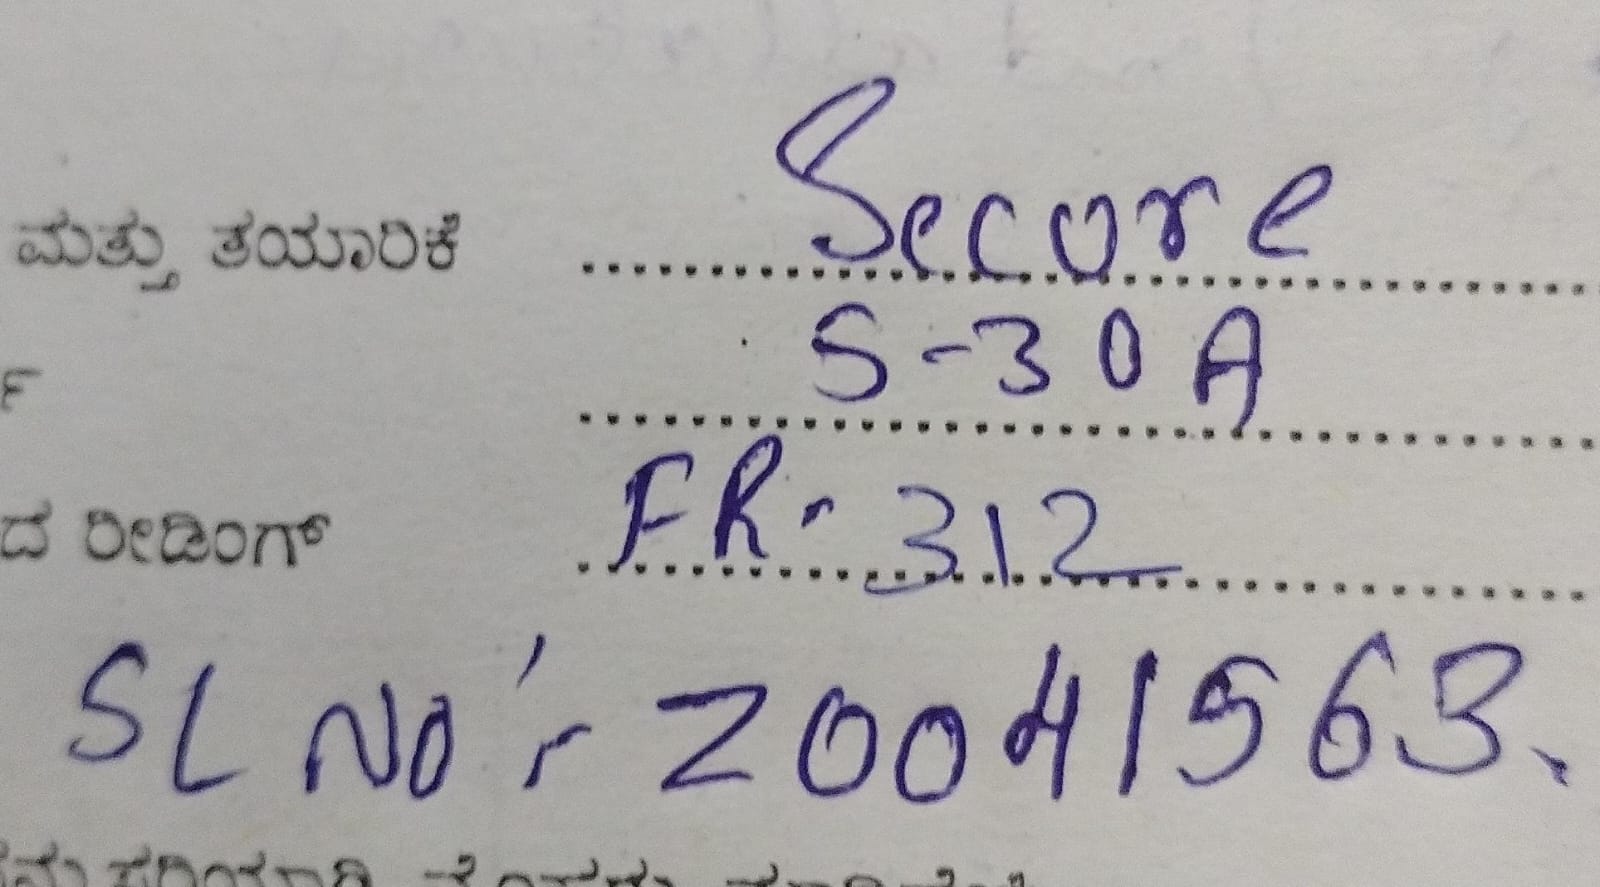 ಮತ್ತು ತಯಾರಿಕೆ Secure
S-30A
ದ ರೀಡಿಂಗ್ FR- 312
SL No:- Z0041563.